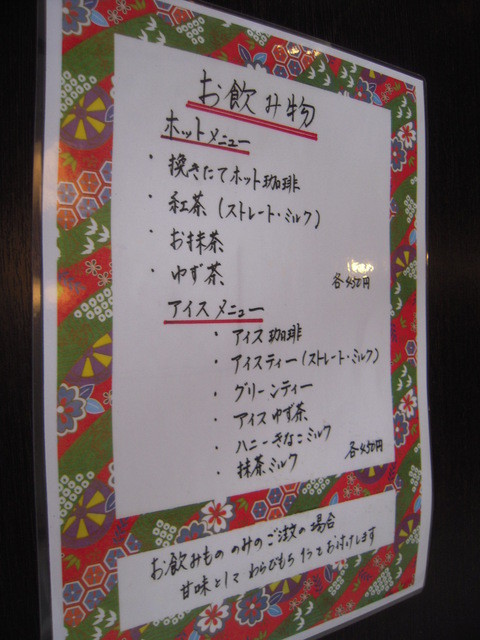 お飲み物
ホットメニュー
・挽きたてホット珈琲
・紅茶(ストレート・ミルク)
・お抹茶
・ゆず茶
各450円
アイスメニュー
・アイス珈琲
・アイスティー(ストレート・ミルク)
・グリーンティー
・アイスゆず茶
・ハニーきなこミルク
・抹茶ミルク
各450円
お飲みもののみのご注文の場合
甘味として わらびもち 1つをお付けします